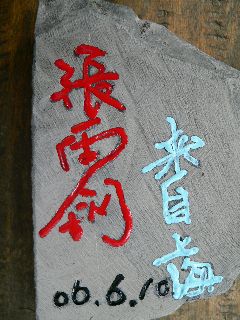 張雨劍
来自上海
06.6.10